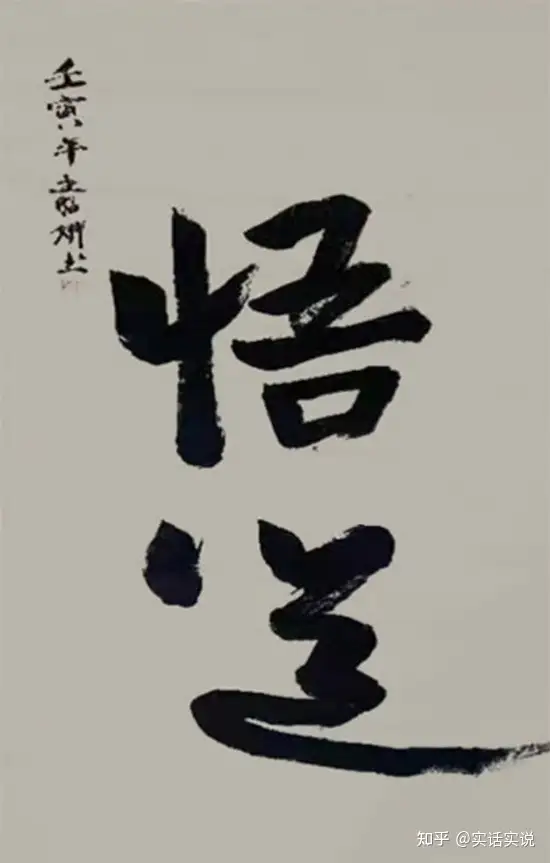 悟道
壬寅年
知乎 @实话实说